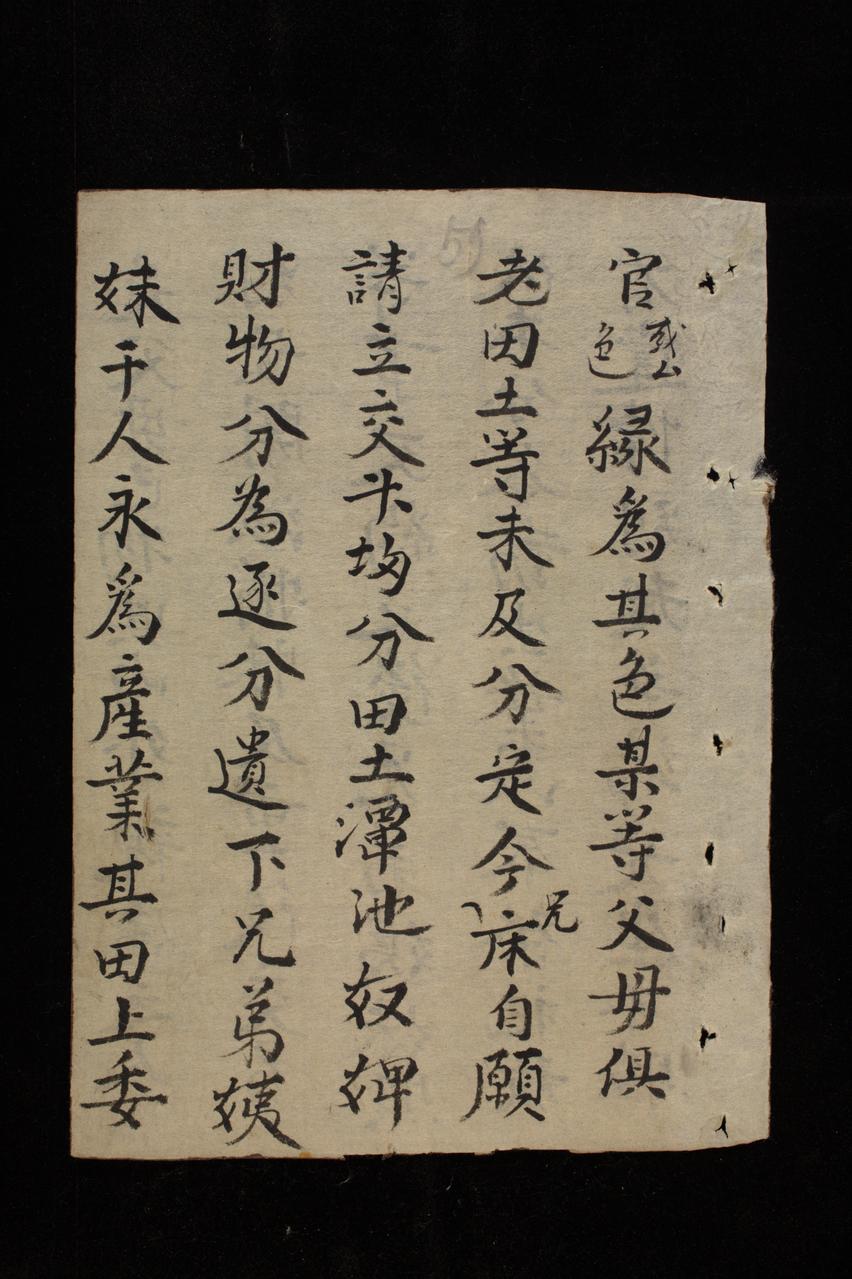 51
官或厶色緑爲其色某等父母俱
老田土等未及分定今床兄自願
請立交关均分田土潭池奴婢
財物分為逐分遺下兄弟姨
妹干人永爲產業其田土委